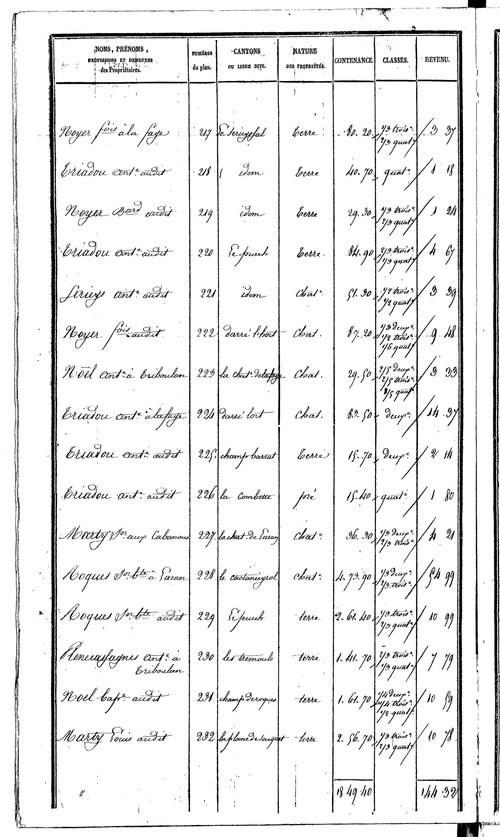 2
NOMS, PRÉNOMS,
PROFESSIONS ET DEMEURES
des Propriétaires.
NUMÉROS
du plan.
CANTONS
OU LIEUX DITS.
NATURE
DES PROPRIÉTÉS.
CONTENANCE.
CLASSES.
REVENU.
Noyer fois à la fage 217 terre 80. 20 1/3 trois 2/3 quat 3 37
Triadou ant. audit 218 idem terre 40. 70 quat. 1 18
Noyer Bard audit 219 idem terre 29. 30 1/3 trois 2/3 quat 1 24
Triadou ant. audit 220 Le puech terre. 84. 90 2/3 trois 1/3 quat 4 67
Sirieys ant. audit 221 idem chat. 51. 30 1/2 trois 1/2 quat 3 39
Noyer fois audit 222 darré l'hort chat. 87. 20 1/3 deux 1/2 trois 1/6 quat 9 48
Noël ant. à Triboulan 223 la chat. de la fage chat. 29. 50 1/5 deux 2/5 trois 2/5 quat 3 33
Triadou ant. à la fage 224 darré l'ort chat. 82. 50 deux. 14 37
Triadou ant. audit 225. champ barrat terre 15. 70 deux. 2 14
Triadou ant. audit 226 la combette pré 15. 40 quat. 1 80
Marty Jn. aux Cabanous 227 la chat. de chat. 36. 30 1/3 deux 2/3 trois 4 21
Roques Jn. bte à 228 le castaneyrol chat. 4. 73. 90 1/3 deux 2/3 trois 54 99
Roques Jn. bte audit 229 Le puech terre 2. 61. 40 1/3 trois 2/3 quat 10 99
ant. à
Triboulan 230 les tremouls terre 1. 41. 70 2/3 trois 1/3 quat 7 79
Noël Bap. audit 231 champ de roques terre 1. 61. 70 1/4 deux 1/4 trois 1/2 quat 10 59
Marty Louis audit 232 la plane de terre 2. 56. 70 1/3 trois 2/3 quat 10 78
18 49. 40 144. 32